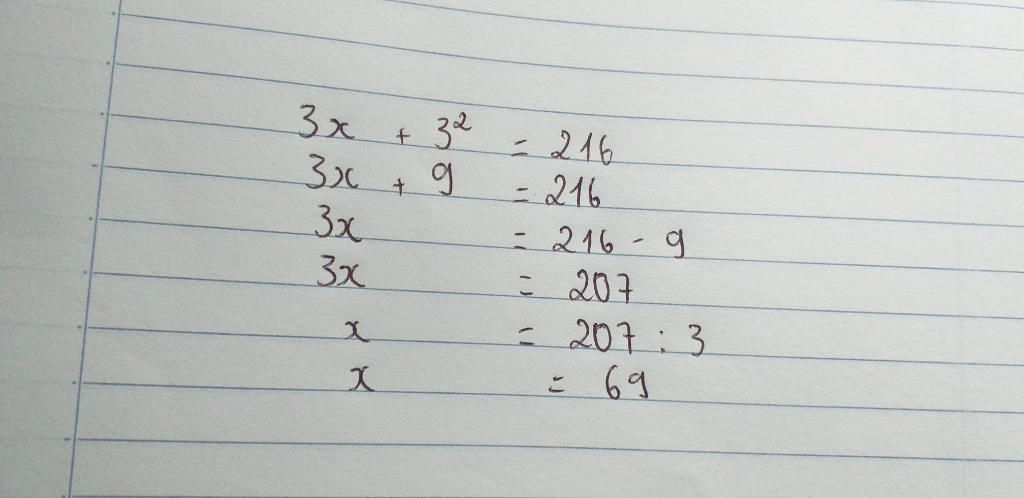 3x + 3² = 216
3x + 9 = 216
3x = 216 - 9
3x = 207
x = 207 : 3
x = 69